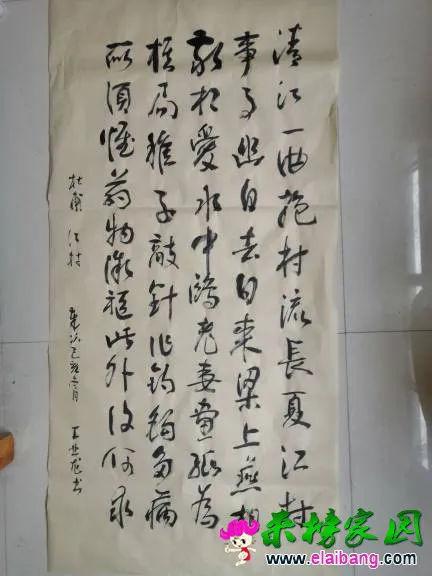 清江一曲抱村流長夏江村
事事幽自去自來梁上燕相
親相愛水中鷗老妻畫紙為
棋局稚子敲針作釣鈎多病
所須惟药物微軀此外復何求
杜甫 江村 歲次己亥 月 王 书
来榜家园
www.elaibang.com